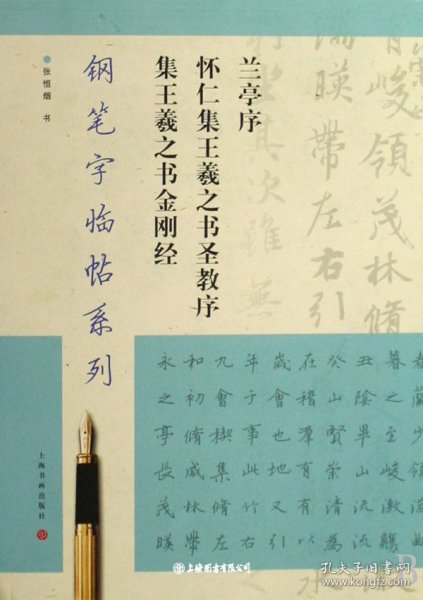 兰亭序
怀仁集王羲之书圣教序
集王羲之书金刚经
张恒烟 书
钢笔字临帖系列
峻領茂林脩
湍暎帶左右引
其次雖無
永和九年歲在癸丑暮春
之初會于會稽山陰之蘭
亭脩禊事也羣賢畢至少
長咸集此地有崇山峻領
茂林脩竹又有清流激湍
暎帶左右引以為流觴曲
上海书画出版社
上海图书有限公司
孔夫子旧书网
www.kongfz.com